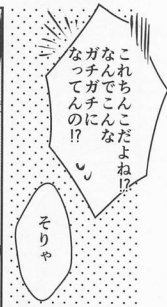 これちんこだよね!?
なんでこんな
ガチガチに
なってんの!?
そりゃ